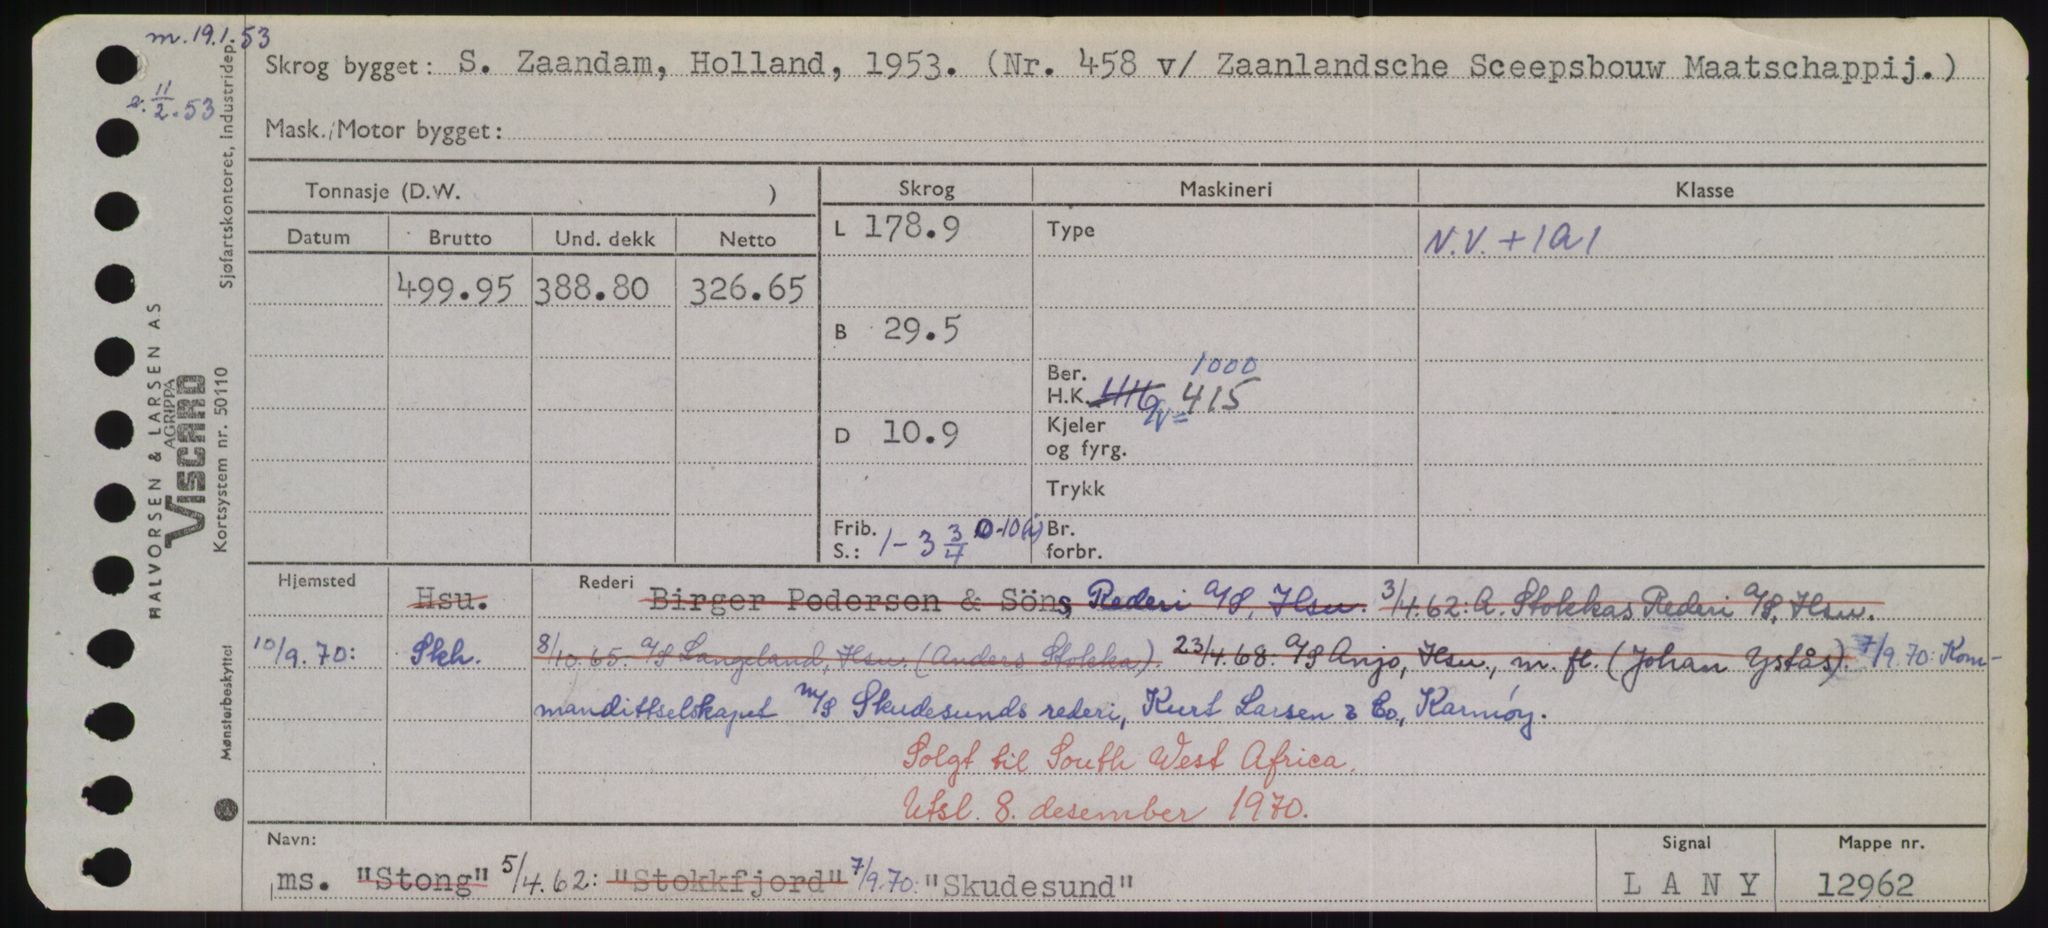 m. 19.1.53
11/2.53
Skrog bygget: S. Zaandam, Holland, 1953. (Nr. 458 v/ Zaanlandsche Sceepsbouw Maatschappij.)
Mask./Motor bygget:
Tonnasje (D.W. )
Skrog
Maskineri
Klasse
Datum
Brutto
Und. dekk
Netto
L 178.9
Type
N.V. + 1A1
499.95
388.80
326.65
B 29.5
Ber. 1000
H.K. 415
D 10.9
Kjeler
og fyrg.
Trykk
Frib.
S.: 1-3 3/4
Br.
forbr.
Hjemsted
Hsu.
Rederi
Birger Pedersen & Söns Rederi A/S, Hsu. 3/4.62: A. Stokkas Rederi A/S, Hsu.
10/9.70: Skh. 8/10.65. A/S Langeland, Hsu. (Anders Stokka). 23/4.68. A/S Anjo, Hsu., m. fl. (Johan Ystås). 7/9.70: Kom-
mandittselskapet M/S Skudesunds rederi, Kurt Larsen & Co., Karmøy.
Solgt til South West Africa.
Utsl. 8. desember 1970.
Navn:
Signal
Mappe nr.
ms. "Stong" 5/4.62: "Stokkfjord" 7/9.70: "Skudesund"
L A N Y
12962
HALVORSEN & LARSEN AS
AGRIPPA
VISCARD
Kortsystem nr. 50110
Sjøfartskontoret, Industridep.
Mønsterbeskyttet